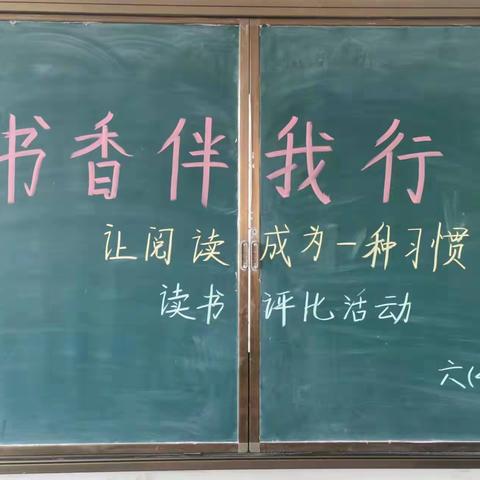 书香伴我行
让阅读成为一种习惯
读书评比活动
六(